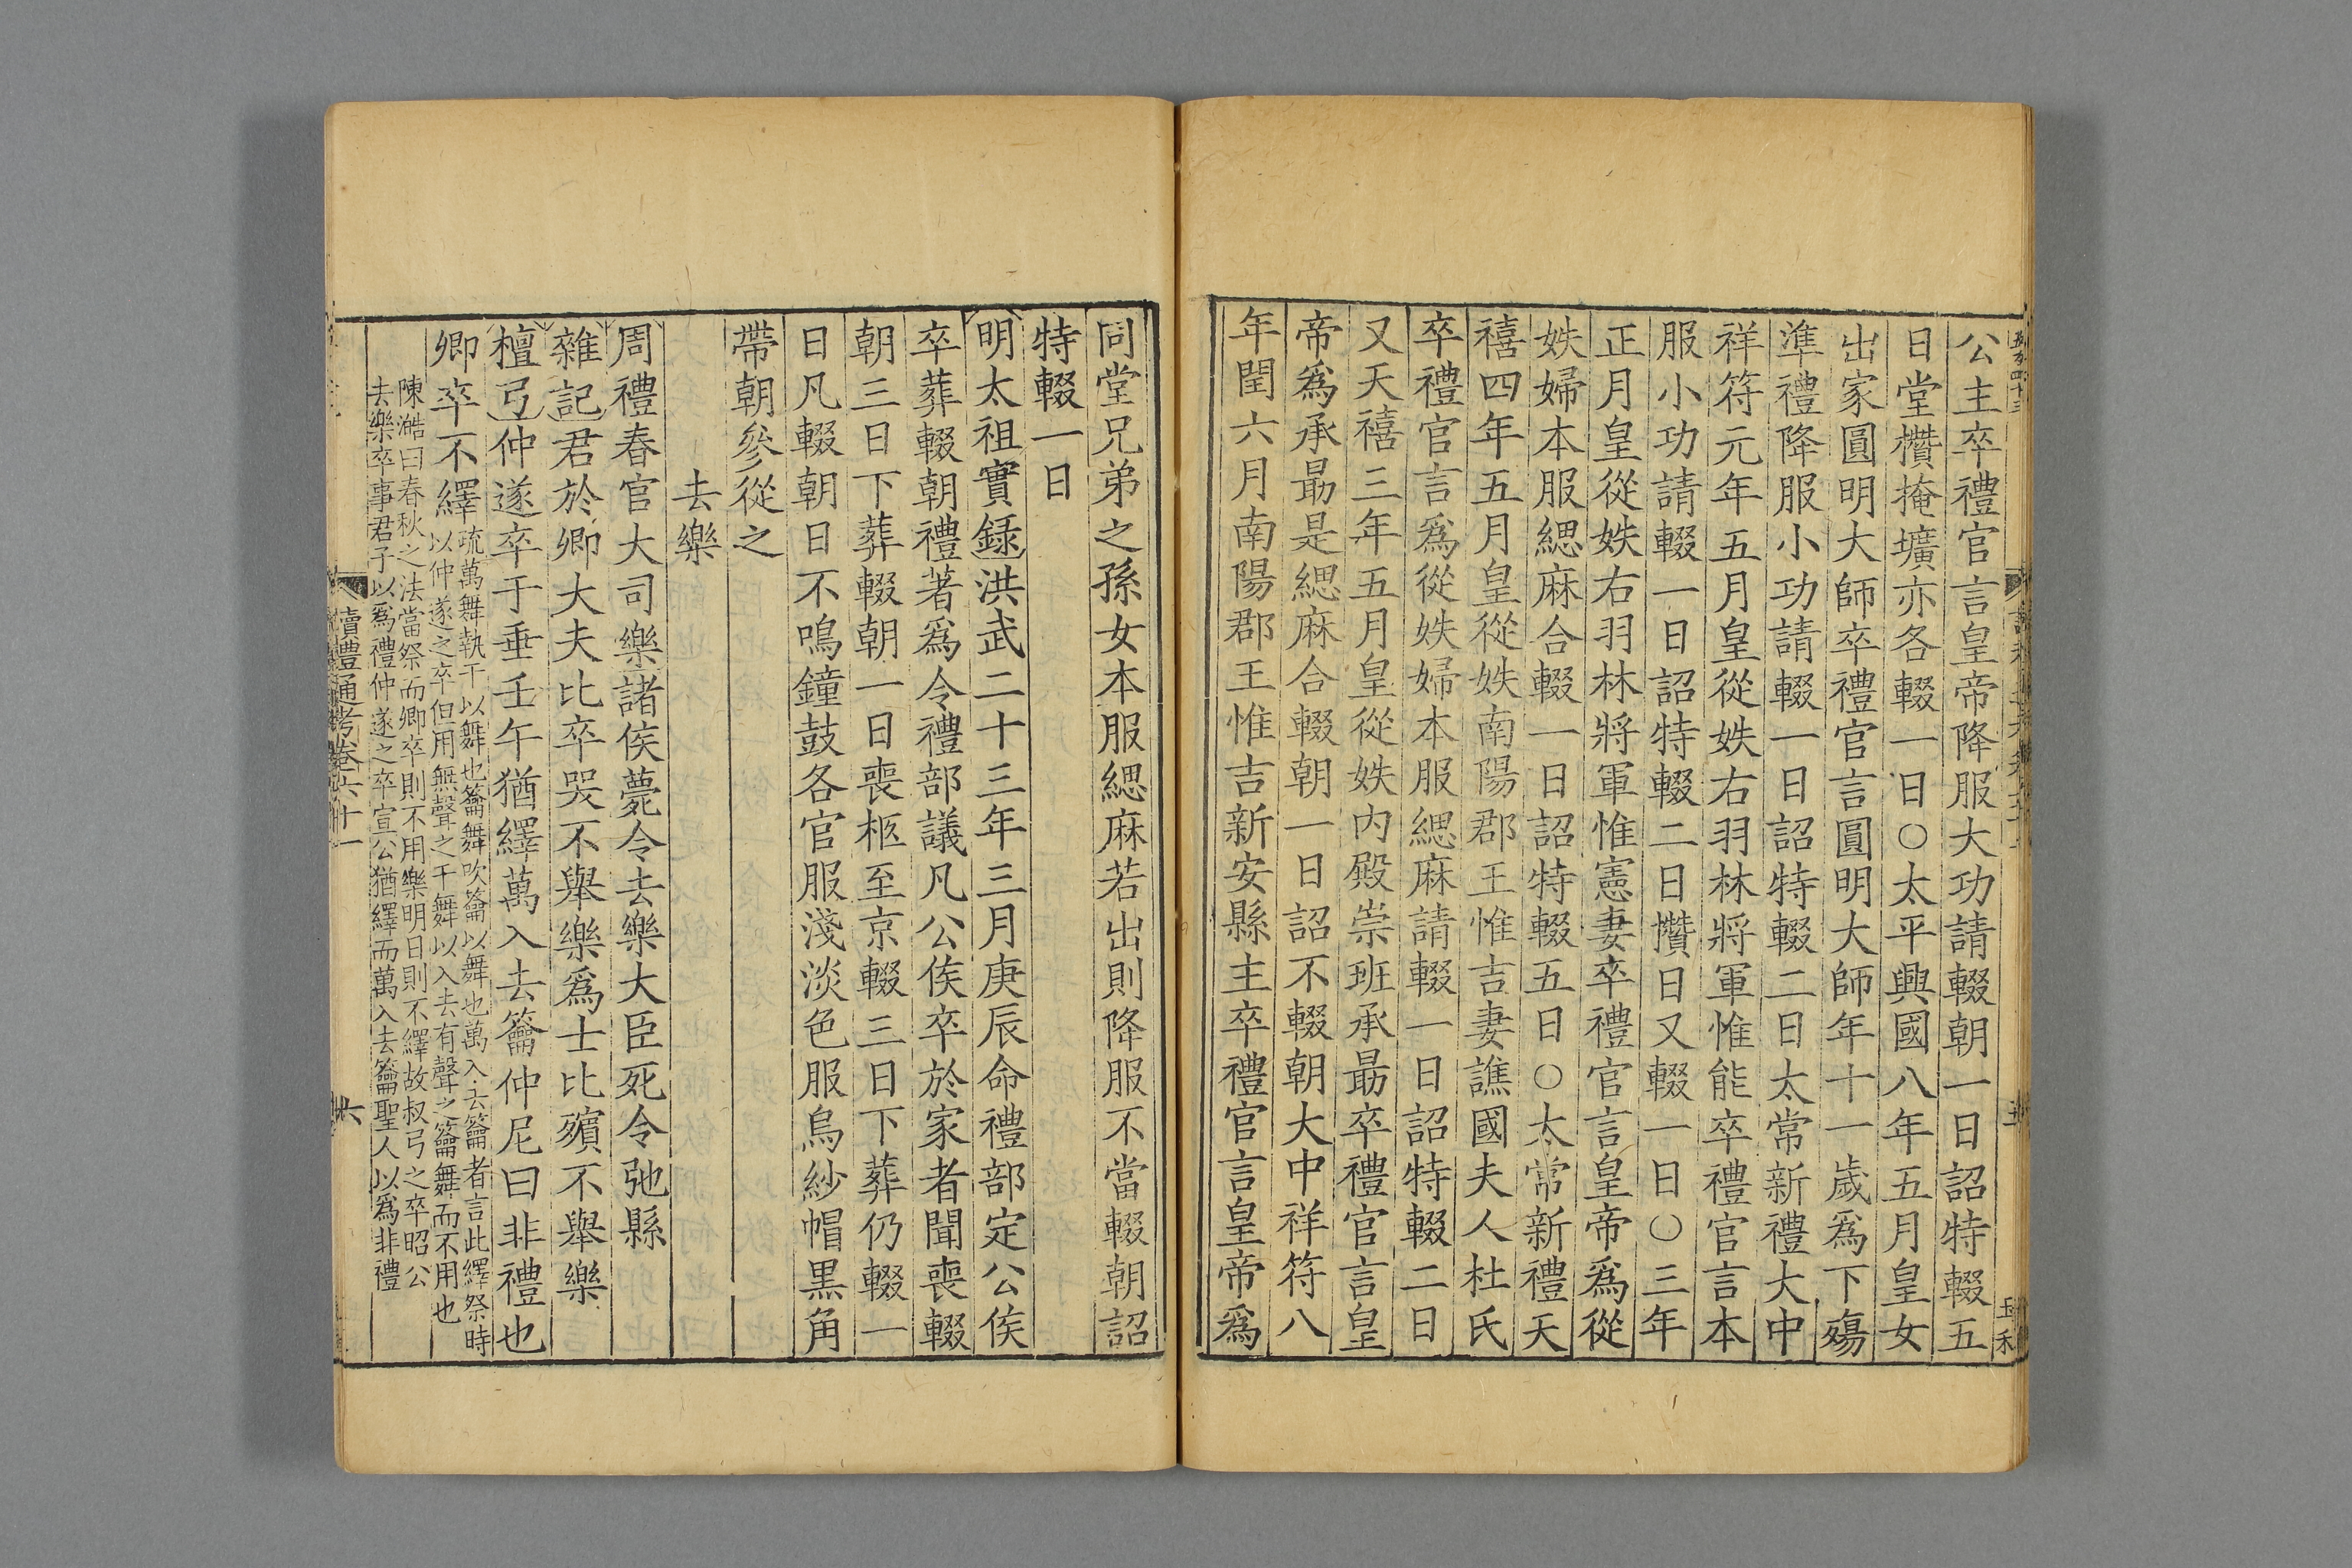 公主卒禮官言皇帝降服大功請輟朝一日詔特輟五
日堂欑掩壙亦各輟一日○太平興國八年五月皇女
出家圓明大師卒禮官言圓明大師年十一歲爲下殤
準禮降服小功請輟一日詔特輟二日太常新禮大中
祥符元年五月皇從姪右羽林將軍惟能卒禮官言本
服小功請輟一日詔特輟二日欑日又輟一日○三年
正月皇從姪右羽林將軍惟憲妻卒禮官言皇帝爲從
姪婦本服緦麻合輟一日詔特輟五日○太常新禮天
禧四年五月皇從姪南陽郡王惟吉妻譙國夫人杜氏
卒禮官言爲從姪婦本服緦麻請輟一日詔特輟二日
又天禧三年五月皇從姪內殿崇班承勗卒禮官言皇
帝爲承勗是緦麻合輟朝一日詔不輟朝大中祥符八
年閏六月南陽郡王惟吉新安縣主卒禮官言皇帝爲
同堂兄弟之孫女本服緦麻若出則降服不當輟朝詔
特輟一日
明太祖實錄洪武二十三年三月庚辰命禮部定公侯
卒葬輟朝禮著爲令禮部議凡公侯卒於家者聞喪輟
朝三日下葬輟朝一日喪柩至京輟三日下葬仍輟一
日凡輟朝日不鳴鐘鼓各官服淺淡色服烏紗帽黑角
帶朝參從之
去樂
周禮春官大司樂諸侯薨令去樂大臣死令弛縣
雜記君於卿大夫比卒哭不舉樂爲士比殯不舉樂
檀弓仲遂卒于垂壬午猶繹萬入去籥仲尼曰非禮也
卿卒不繹
疏萬舞執干以舞也籥舞吹籥以舞也萬入去籥者言此繹祭時
以仲遂之卒但用無聲之干舞以入去有聲之籥舞而不用也
陳澔曰春秋之法當祭而卿卒則不用樂明日則不繹故叔弓之卒昭公
去樂卒事君子以爲禮仲遂之卒宣公猶繹而萬入去籥聖人以爲非禮
讀禮通考卷六十一
六